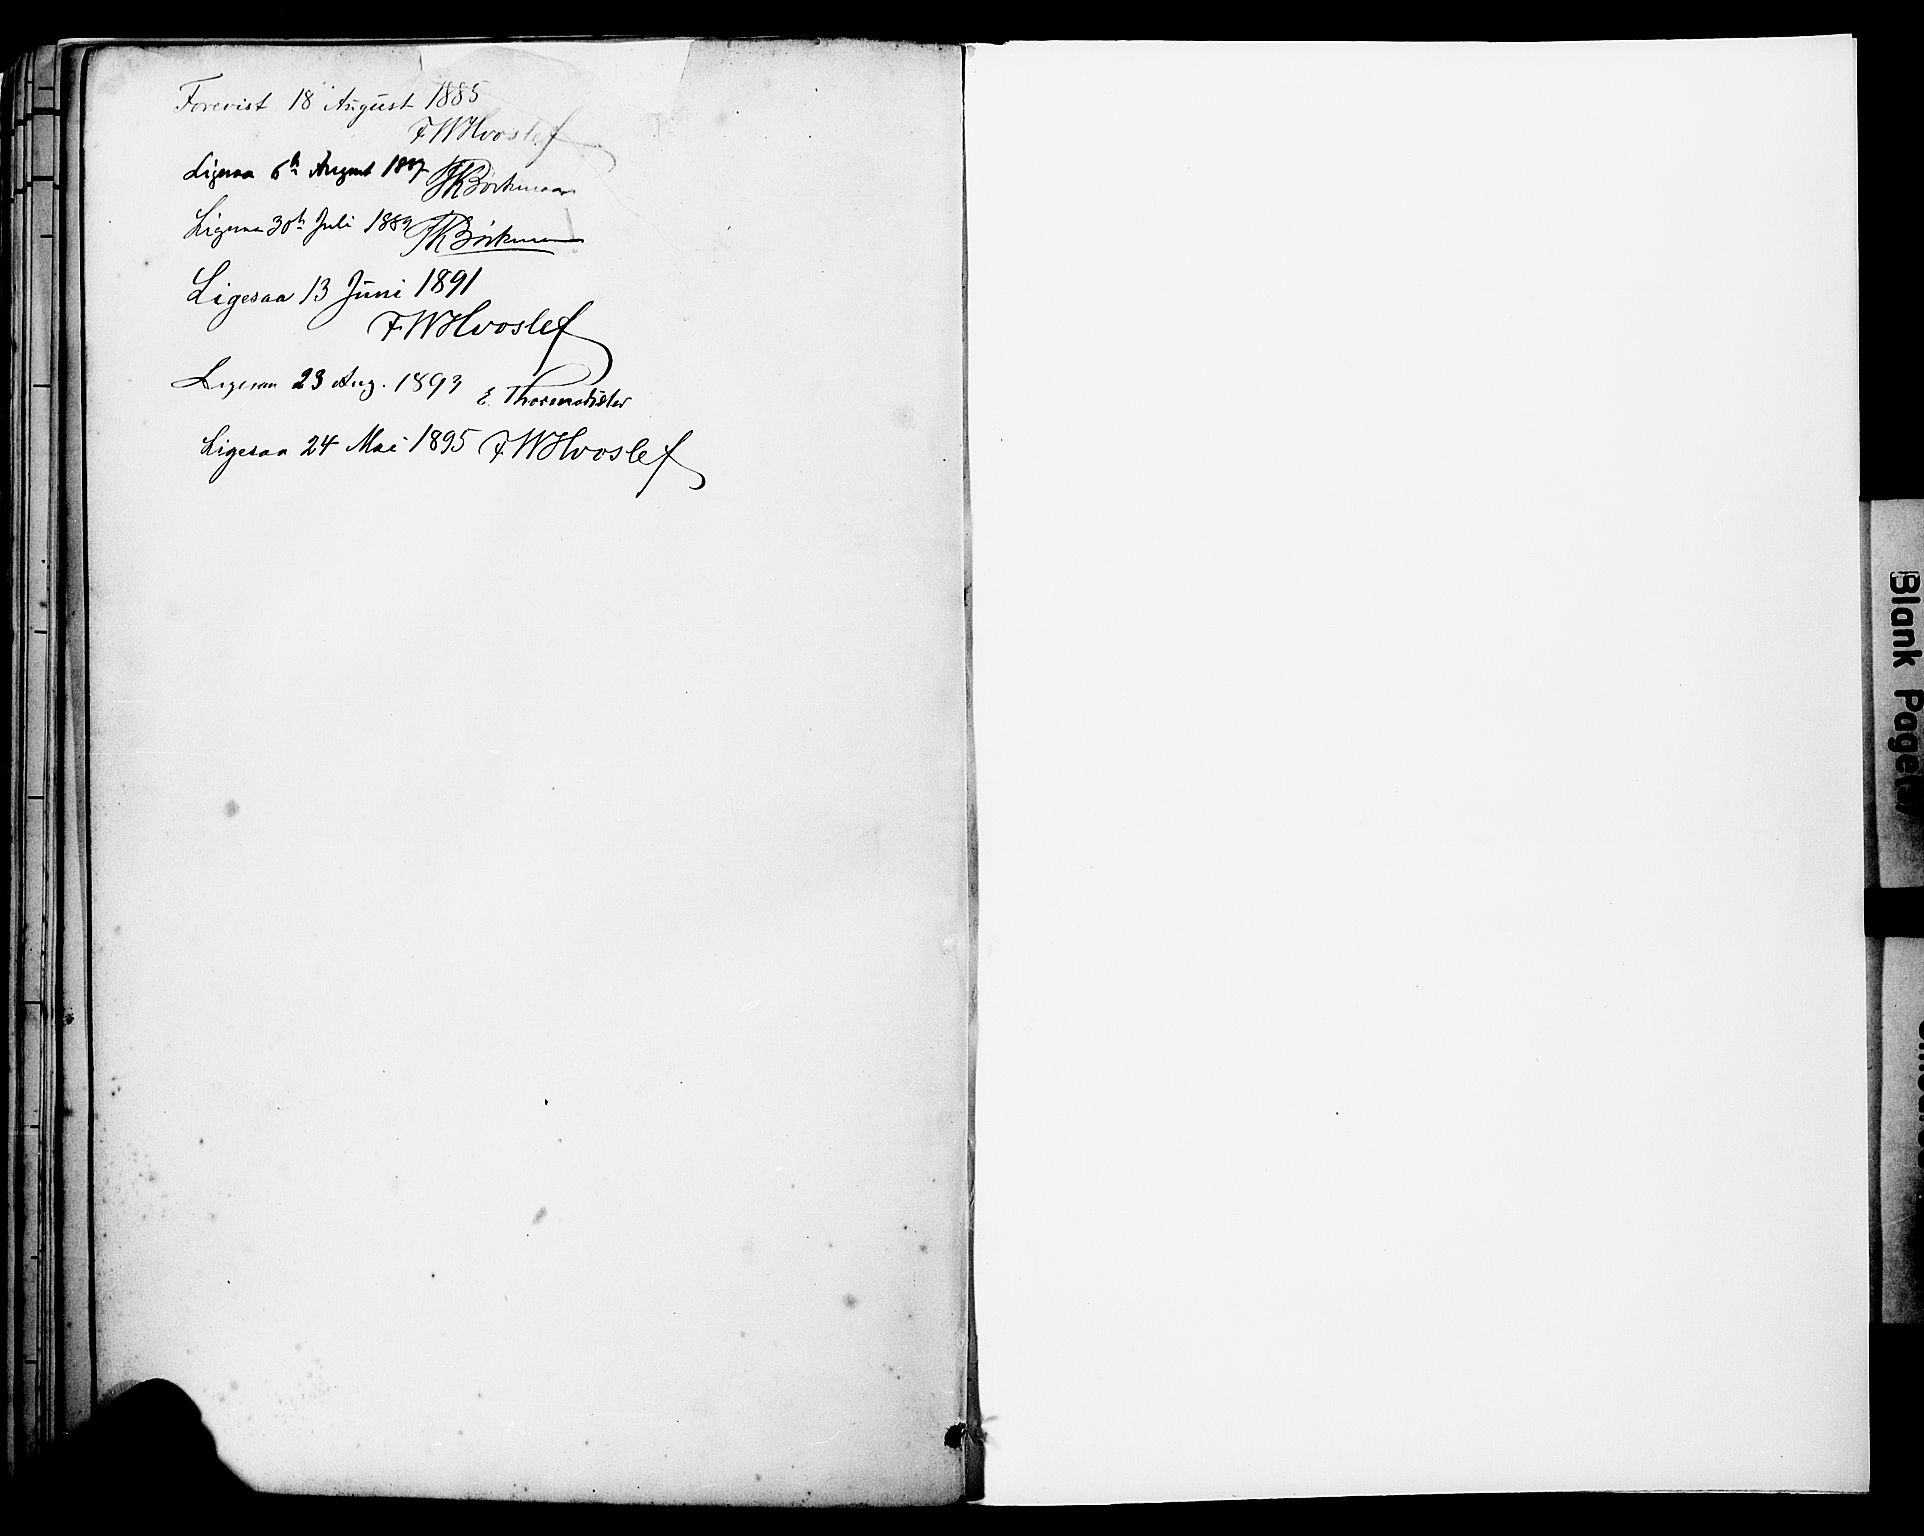 Forevist 18 August 1885
FWHvoslef
Ligesaa 6th August 1887 JKBöckmann
Ligesaa 30th Juli 1889 JKBöckman
Ligesaa 13 Juni 1891
FWHvoslef
Ligesaa 23 Aug. 1893 E.
Ligesaa 24 Mai 1895 FWHvoslef
Blank Page(s)